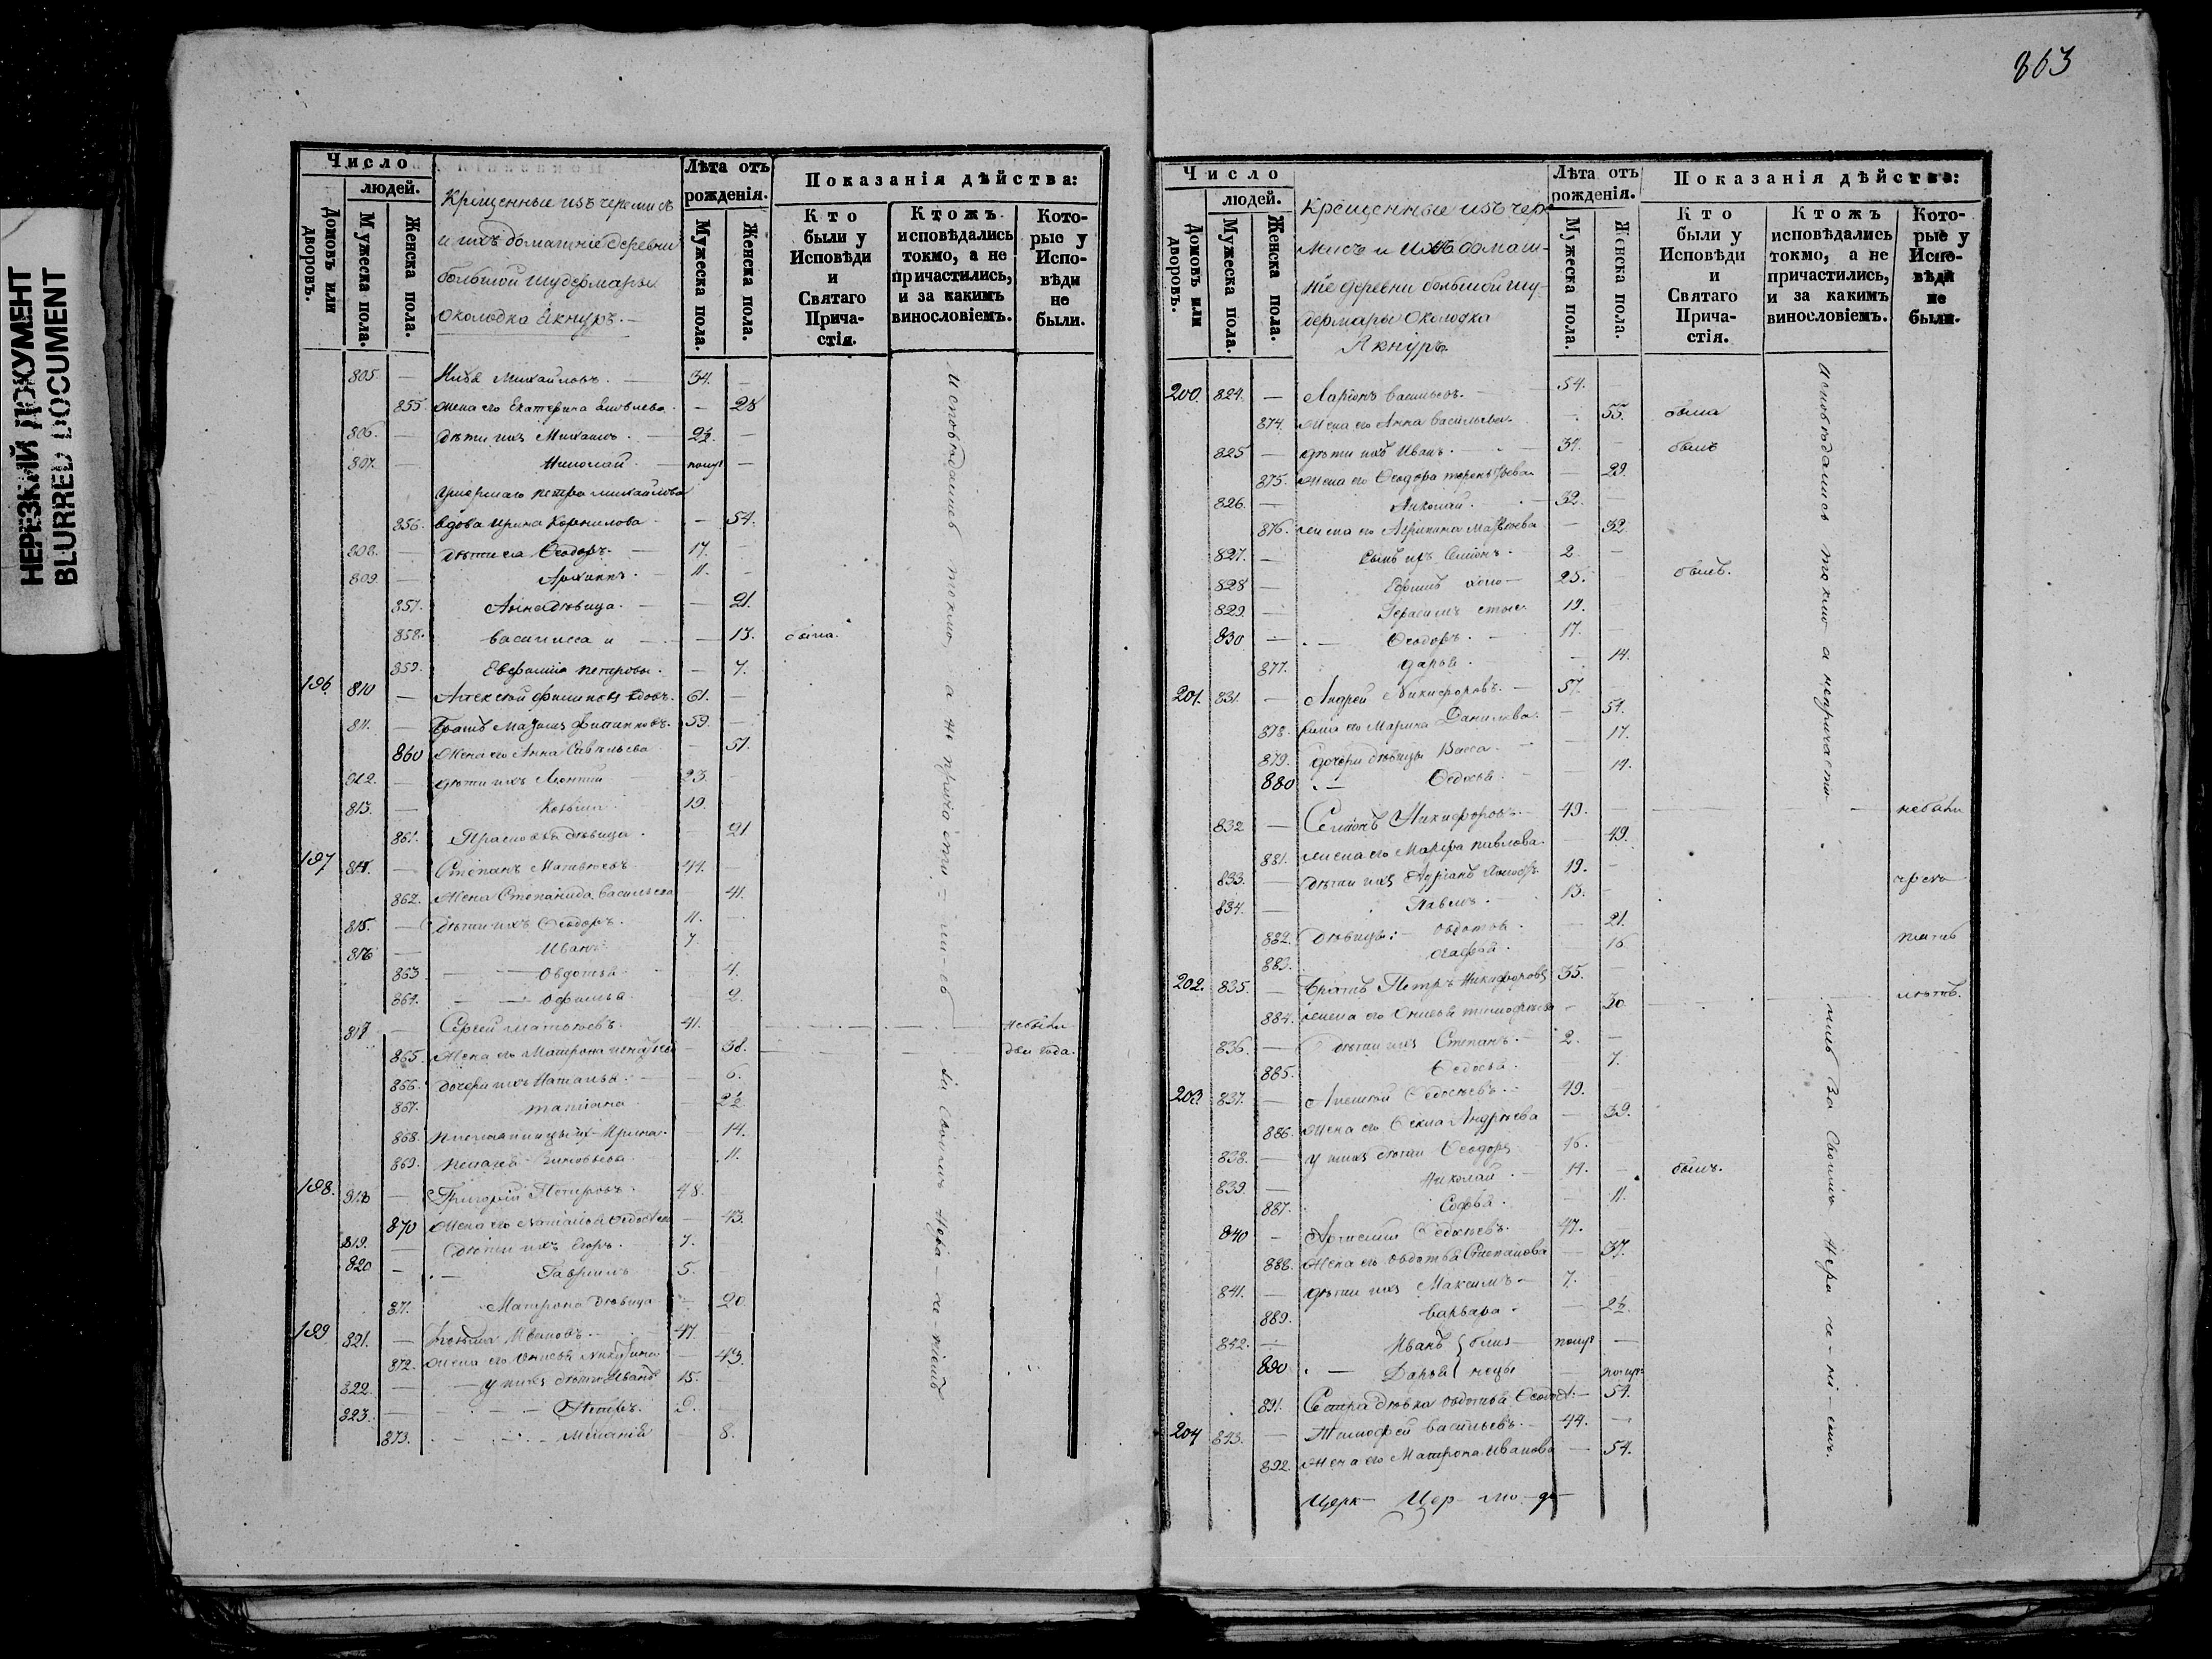 863
НЕРЕЗКИЙ ДОКУМЕНТ
BLURRED DOCUMENT
Число
людей.
Домовъ или дворовъ.
Мужеска пола.
Женска пола.
Крещенные изъ черемисъ
и ихъ домашніе деревни
большой Шудермары
околодка Якнуръ.
Лѣта отъ рожденія.
Мужеска пола.
Женска пола.
Показанія дѣйства:
Кто были у Исповѣди и Святаго Причастія.
Ктожъ исповѣдались токмо, а не причастились, и за какимъ винословіемъ.
Которые у Исповѣди не были.
805. — Михайловъ. — 34. —
855. жена его Екатерина Яковлева. — 28
806. — дѣти ихъ Михаилъ. —
807. — Николай — полуг —
умершаго Петра Михайлова
856. вдова Ирина Корнилова — 54.
808. — дѣти ея Ѳеодоръ. — 17. —
809. — Архипъ. 11. —
857. Анна дѣвица. — 21.
858. Василисса и — 13. была.
859. Евфимія Петровы. — 7.
196. 810 — Алексѣй Филиповъ вдовъ. 61. —
811. — братъ 59. —
860 Жена его Анна Савельева — 51.
812. — дѣти ихъ Леонтій 23. —
813. — Козьма 19.
861. Прасковья дѣвица. — 21
197 814. — Степанъ Матвѣевъ 44. —
862. Жена Степанида Васильева — 41.
815. — дѣти ихъ Ѳеодоръ. 11.
816 — Иванъ 7.
863 — Овдотья — 4.
864. — — 2.
817 — Сергей Матвѣевъ. 41. — небыли
865. Жена его Матрона — 38. — два года.
866. дочери ихъ Наталья. — 6.
867. Татіана — 2½
868. племянницы их Ирина. — 14.
869. Пелагея Зиновьевы — 11.
198. 818 — Григорій Петровъ 48.
870 жена его — 43.
819. — дѣти ихъ Егоръ. 7.
820 — Гавриилъ 5.
871. Матрона дѣвица — 20.
199 821. — Козьма Ивановъ. 47. —
872. жена его Онисья Никитина — 43.
822. — у нихъ дѣти Иванъ 15.
823. — Петръ.
873. — Меланія — 8.
исповѣдались токмо, а не причасти-ли-сь за своимъ нера-че-ніемъ
Число
людей.
Домовъ или дворовъ.
Мужеска пола.
Женска пола.
Крещенные изъ чере
мисъ и ихъ домаш-
ніе деревни большой Шу-
дермары околодка
Якнуръ
Лѣта отъ рожденія.
Мужеска пола.
Женска пола.
Показанія дѣйства:
Кто были у Исповѣди и Святаго Причастія.
Ктожъ исповѣдались токмо, а не причастились, и за какимъ винословіемъ.
Которые у Исповѣди не были.
200. 824. — Ларіонъ Васильевъ. — 54.
874. Жена его Анна Васильева — 55. была
825 — дѣти ихъ Иванъ. — 34. — былъ
875. Жена его Ѳеодора Терентьева — 29.
826. — Николай. — 32. —
876. жена его Агрипина Матвѣева — 32.
827. — сынъ их Семіонъ. — 2 —
828 — Ефимъ холо — 25. — былъ.
829 — Герасимъ стые 19. —
830 — Ѳеодоръ. — 17. —
877. Дарья. — 14.
201. 831. — Андрей Никифоровъ. — 57. —
878. жена его Марина Данилова. — 51.
879. дочери дѣвицы Васса. — 17.
880 — Ѳедосья. — 14.
832 — Семіонъ Никифоровъ. 49. — небыли
881. жена его Марфа Павлова. — 49.
833. — дѣти ихъ Адріанъ 19. —
834. — Павелъ. — 13. —
882. Дѣвицы: Овдотья. — 21. пять
883. Агафья. — 16
202. 835. — братъ Петръ Никифоровъ 35. — лѣтъ.
884. жена его Онисья Тимофеева — 30
836. — дѣти ихъ Степанъ. — 2. —
885. Ѳедосья. 7.
203. 837. — Алексѣй Ѳедосѣевъ. 49.
886. жена его Ѳекла Андреева — 39.
838. — у нихъ дѣти Ѳеодоръ 16. —
839. — Николай. — 14. — былъ.
887. Софья. — 11.
840 — Ѳедосѣевъ. 47. —
888. Жена его Овдотья Степанова — 37.
841. — дѣти ихъ Максимъ — 7. —
889. Варвара. — 2½.
842. — Иванъ } близ — полуг —
890 — Дарья } нецы — полуг
891. Сестра дѣвка Овдотья Ѳедос: — 51.
204 843. — Тимофей Васильевъ. — 44. —
892. жена его Матрона Иванова — 54.
исповѣдались токмо а непричасти-лись за своимъ нера-че-ні-емъ.